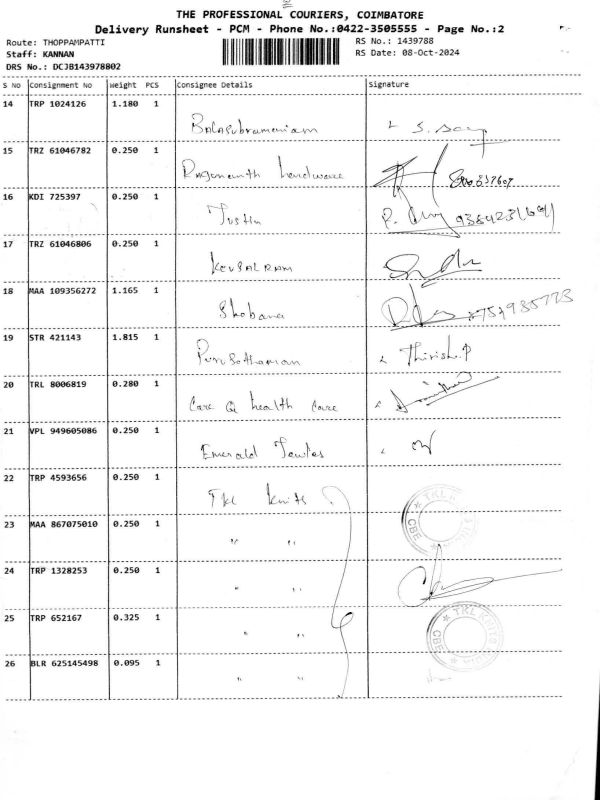 THE PROFESSIONAL COURIERS, COIMBATORE
Delivery Runsheet - PCM - Phone No.:0422-3505555 - Page No.:2
Route: THOPPAMPATTI RS No.: 1439788
Staff: KANNAN RS Date: 08-Oct-2024
DRS No.: DCJB143978802
S No Consignment No Weight PCS Consignee Details Signature
14 TRP 1024126 1.180 1
Balasubramaniam
15 TRZ 61046782 0.250 1
Ragunanth hardware
16 KDI 725397 0.250 1
Justin
17 TRZ 61046806 0.250 1
KEUSALRAM
18 MAA 109356272 1.165 1
Shobana
19 STR 421143 1.815 1
Purusothaman Thirish.P
20 TRL 8006819 0.280 1
Care & health care
21 VPL 949605086 0.250 1
Emerald Jewles
22 TRP 4593656 0.250 1
TKL Knits
TKL KNITS CBE
23 MAA 867075010 0.250 1
" "
24 TRP 1328253 0.250 1
" "
25 TRP 652167 0.325 1
" "
TKL KNITS CBE
26 BLR 625145498 0.095 1
" "